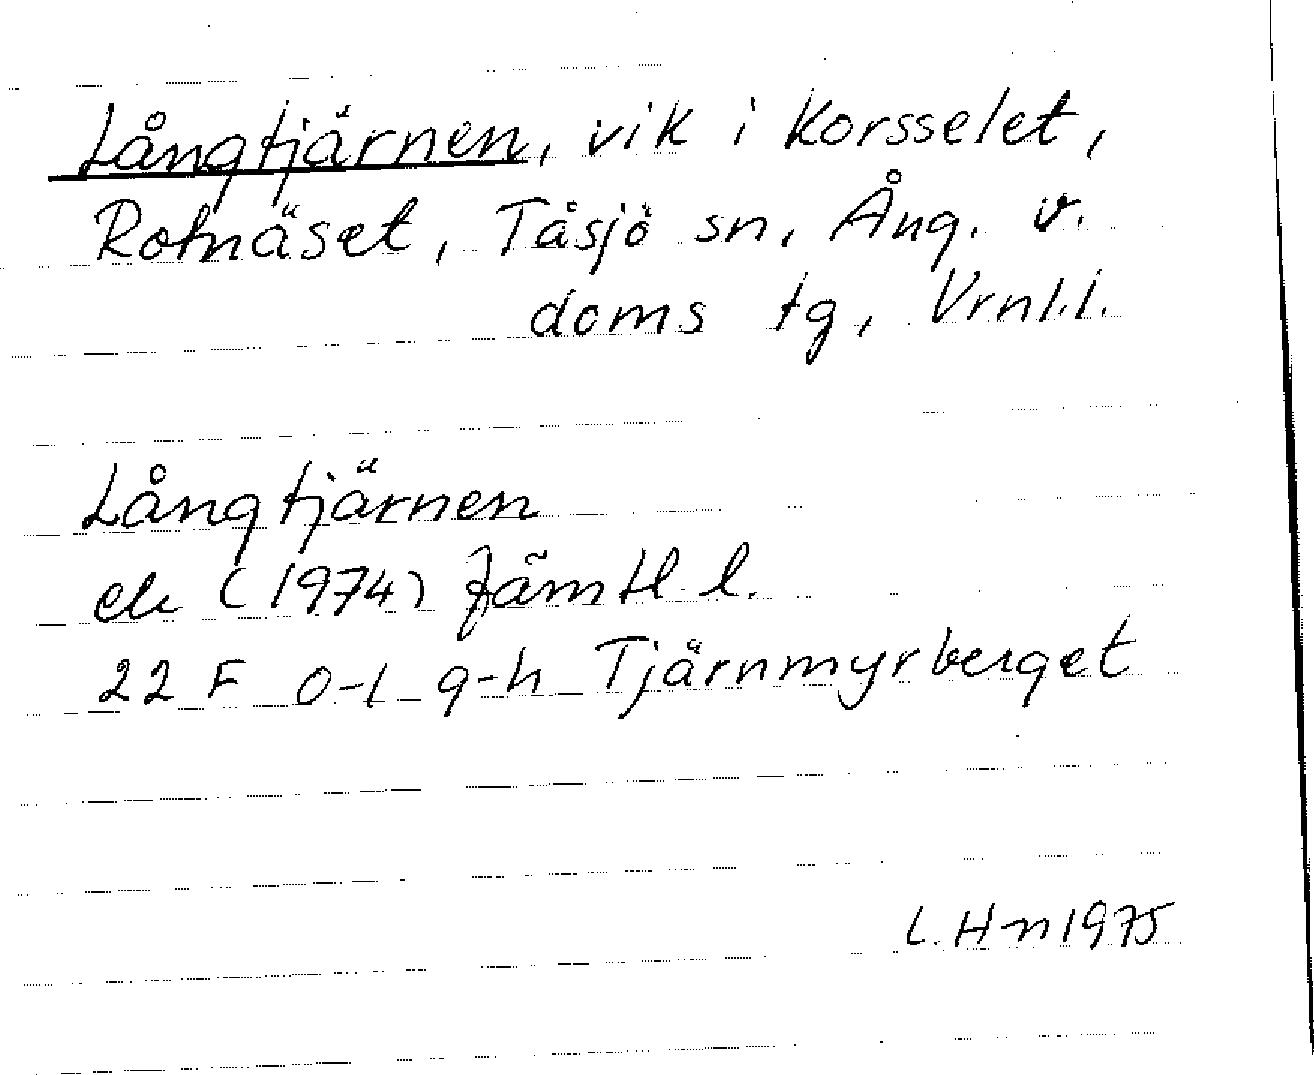 Långtjärnen, vik i Korsselet,
Rotnäset, Tåsjö sn, Ång. v.
doms tg, Vrnl.l.
Långtjärnen
ek (1974) Jämtl. l.
22 F 0-1 g-h Tjärnmyrberget
L. Hn 1975